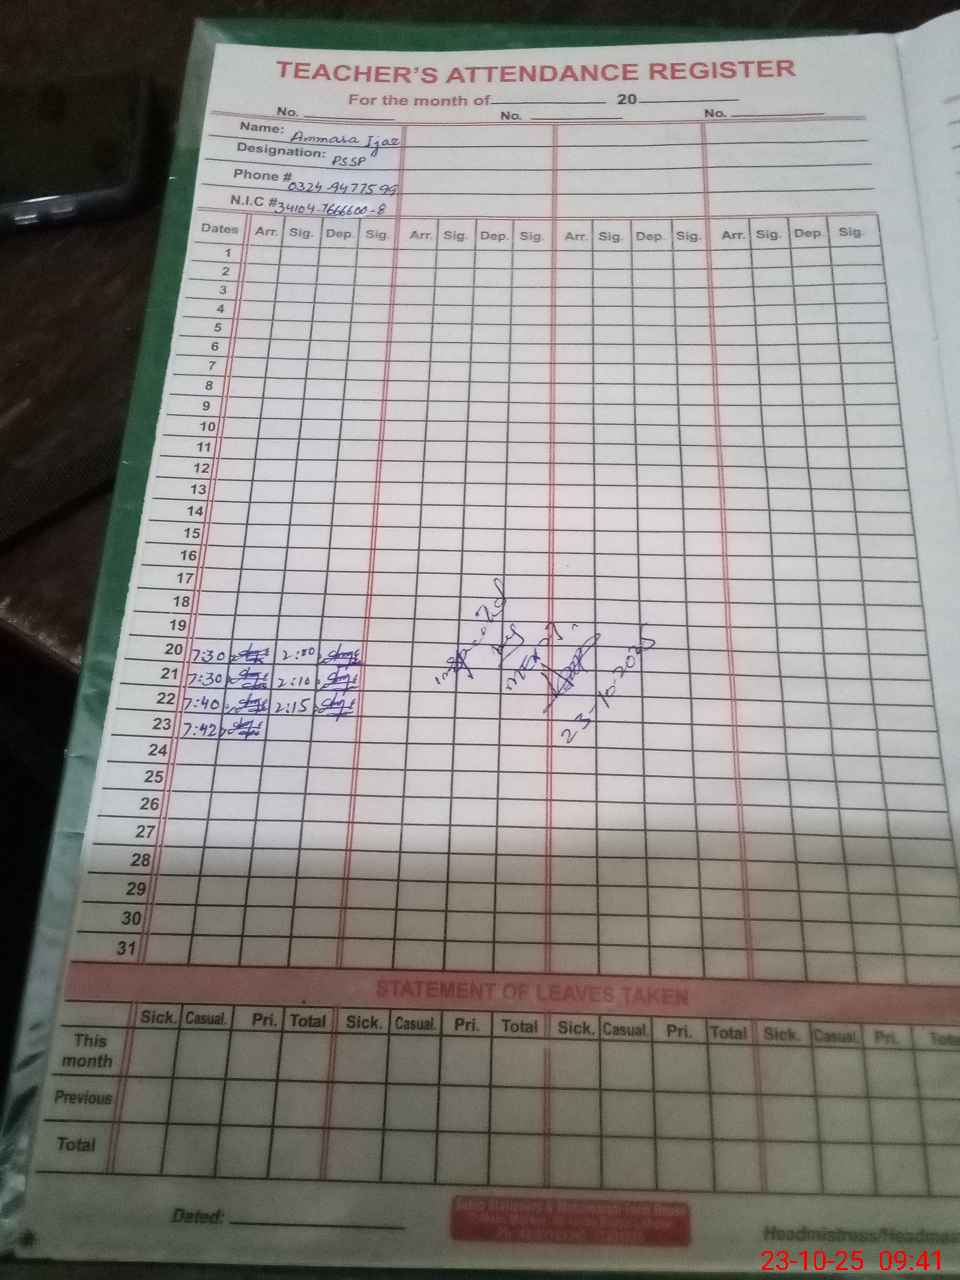 TEACHER'S ATTENDANCE REGISTER
For the month of 20
No. No. No.
Name: Ammara Ijaz
Designation: PSSP
Phone # 0324-9477599
N.I.C # 34104-7666600-8
Dates Arr. Sig. Dep. Sig. Arr. Sig. Dep. Sig. Arr. Sig. Dep. Sig. Arr. Sig. Dep. Sig.
1
2
3
4
5
6
7
8
9
10
11
12
13
14
15
16
17
18
19
20 7:30 2:00
21 7:30 2:10
22 7:40 2:15
23 7:42
24
25
26
27
28
29
30
31
inspected
by
23-10-2025
STATEMENT OF LEAVES TAKEN
Sick. Casual. Pri. Total Sick. Casual. Pri. Total Sick. Casual. Pri. Total Sick. Casual. Pri. Tota
This
month
Previous
Total
Dated:
Headmistress/Headmas
23-10-25 09:41